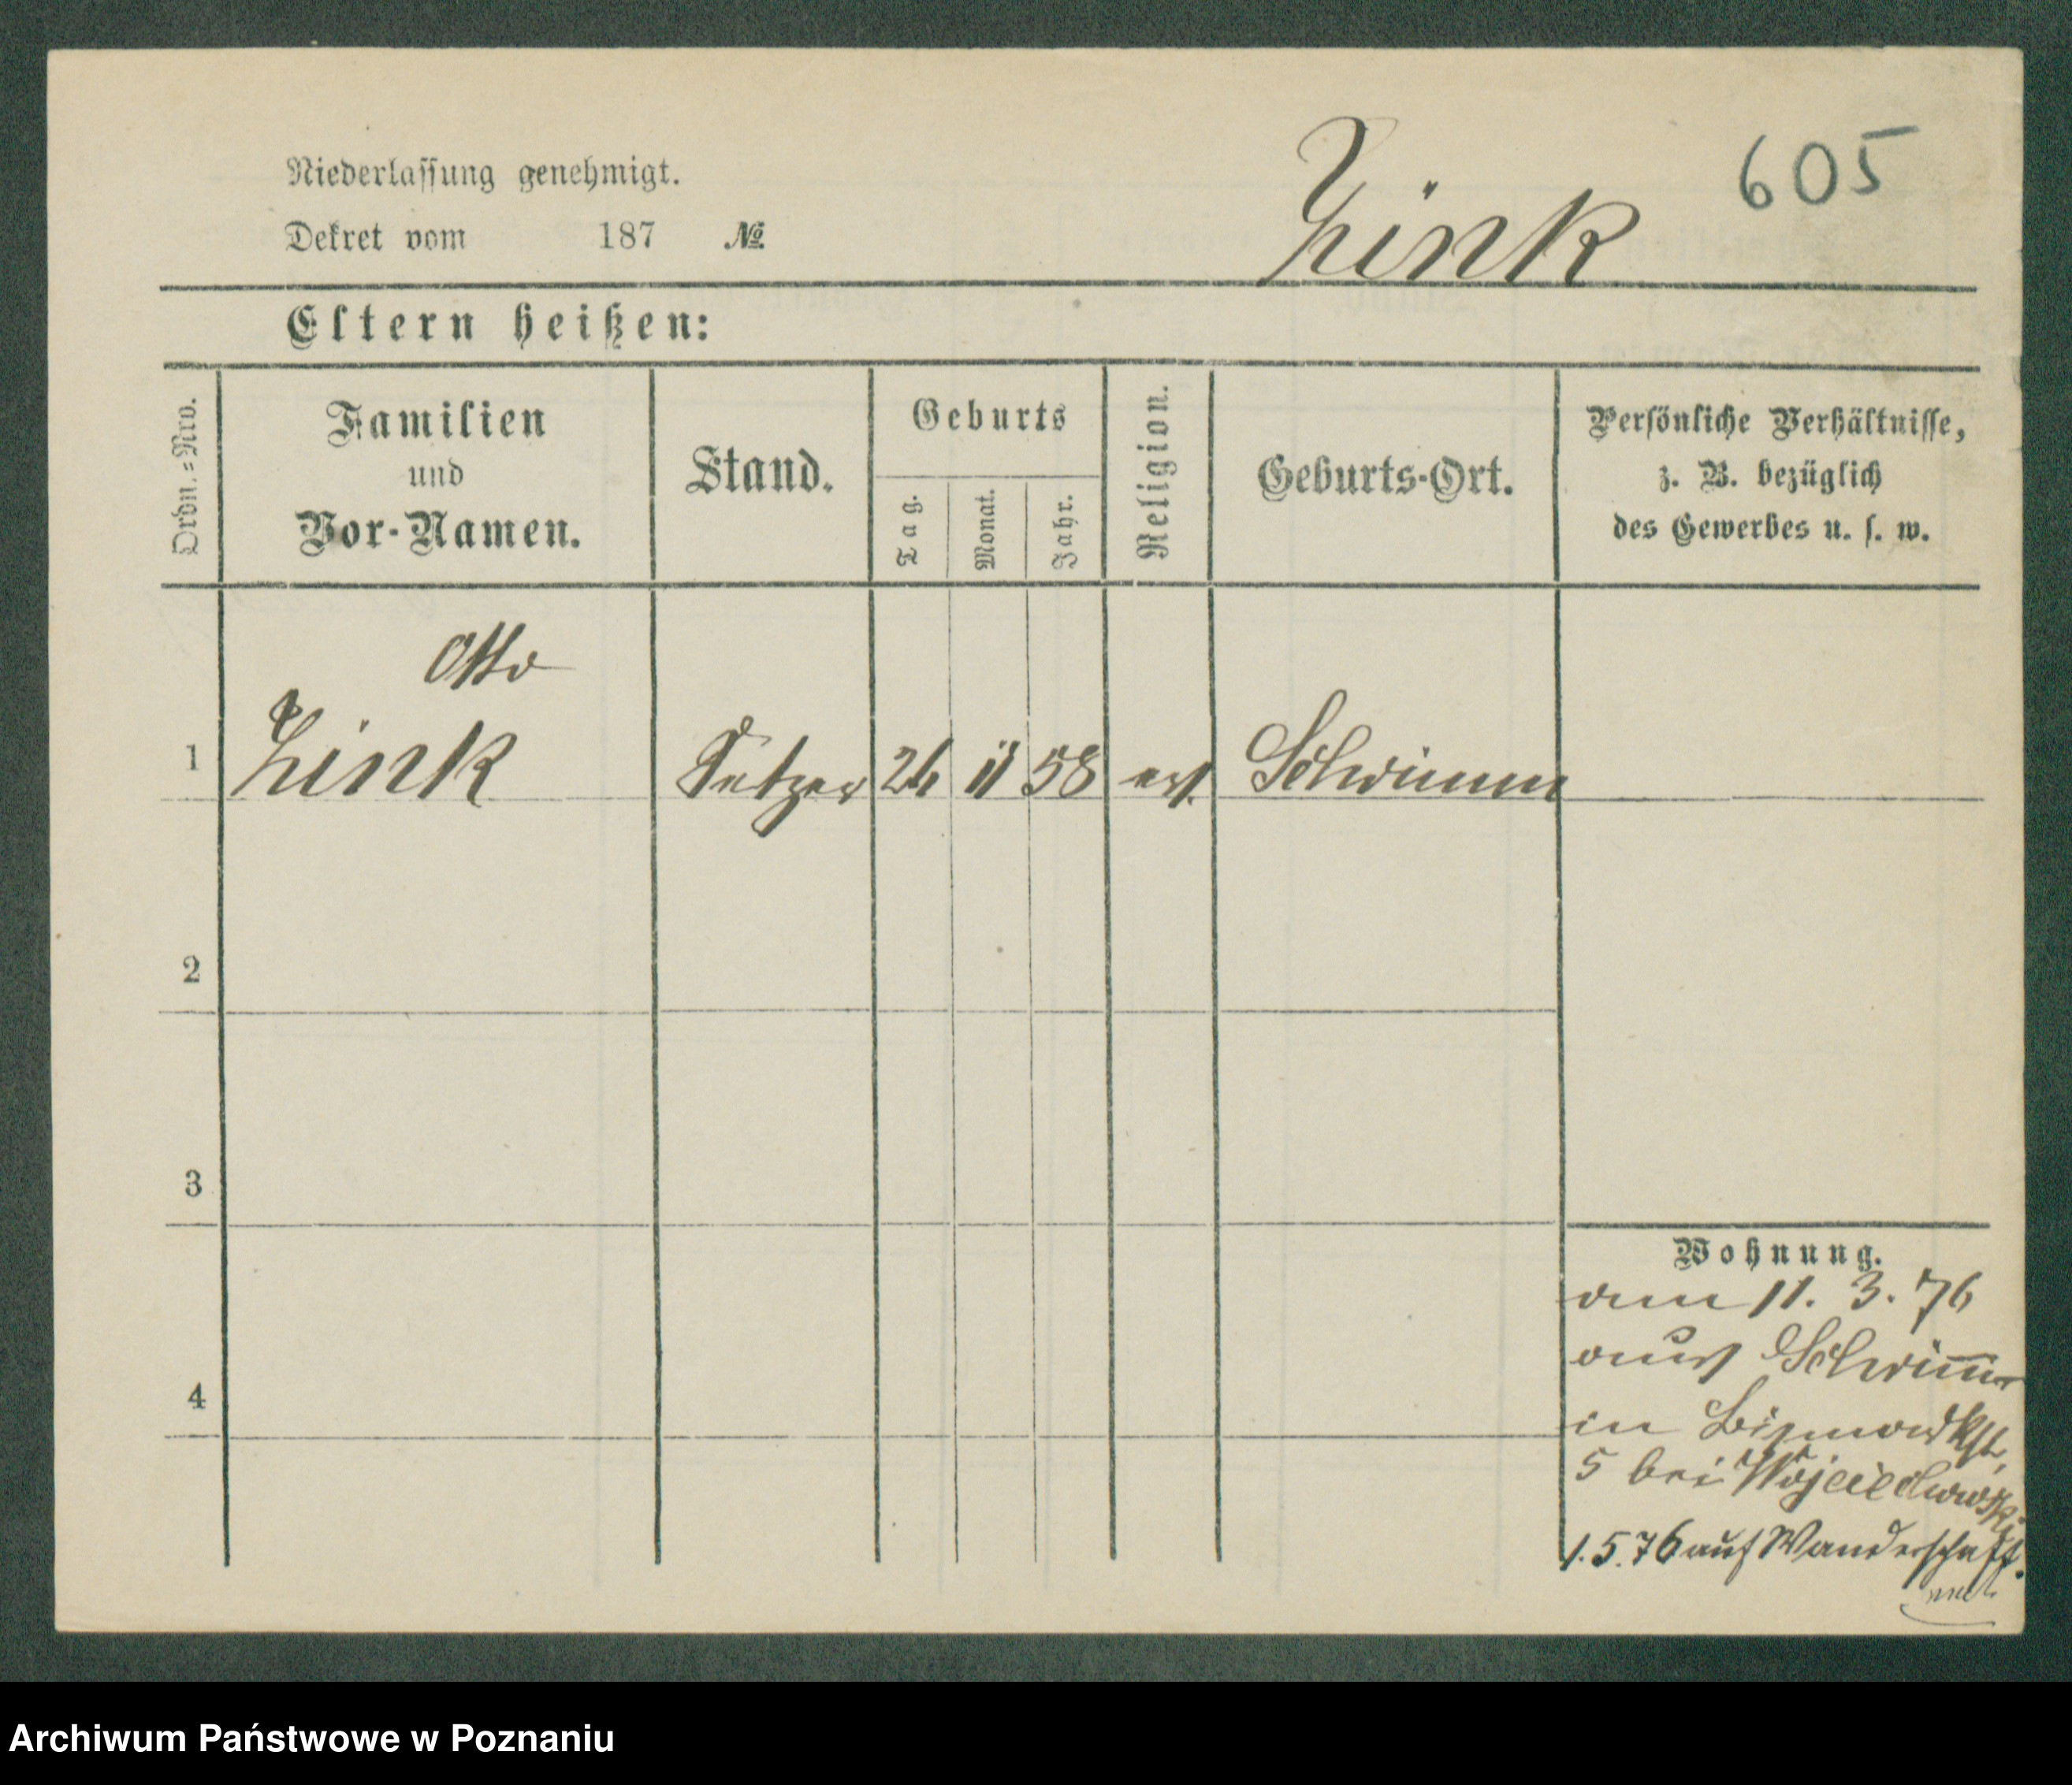 605
Zink
Niederlassung genehmigt.
Dekret vom 187 №
Eltern heißen:
Ordn.=Nro.
Familien
und
Vor-Namen.
Stand.
Geburts
Tag.
Monat.
Jahr.
Religion.
Geburts-Ort.
Persönliche Verhältnisse,
z. B. bezüglich
des Gewerbes u. s. w.
Otto
1 Zink Setzer 26 11 58 ev. Schrimm
2
3
4
Wohnung.
am 11. 3. 76
aus Schrim̅
in Bismarckstr.
5 bei Wojciechowski
1.5.76 auf Wanderschaft.
Archiwum Państwowe w Poznaniu